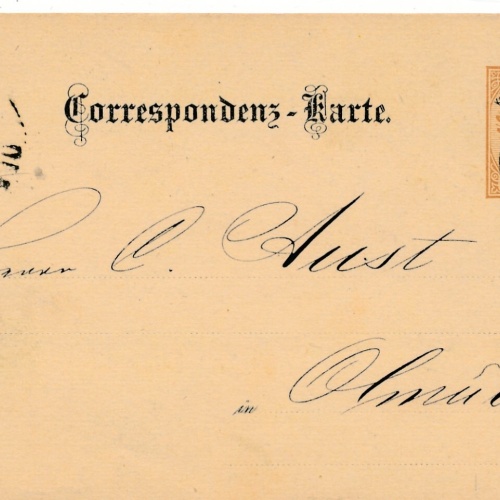 Correspondenz-Karte.
Herrn C. Aust
in Olmü